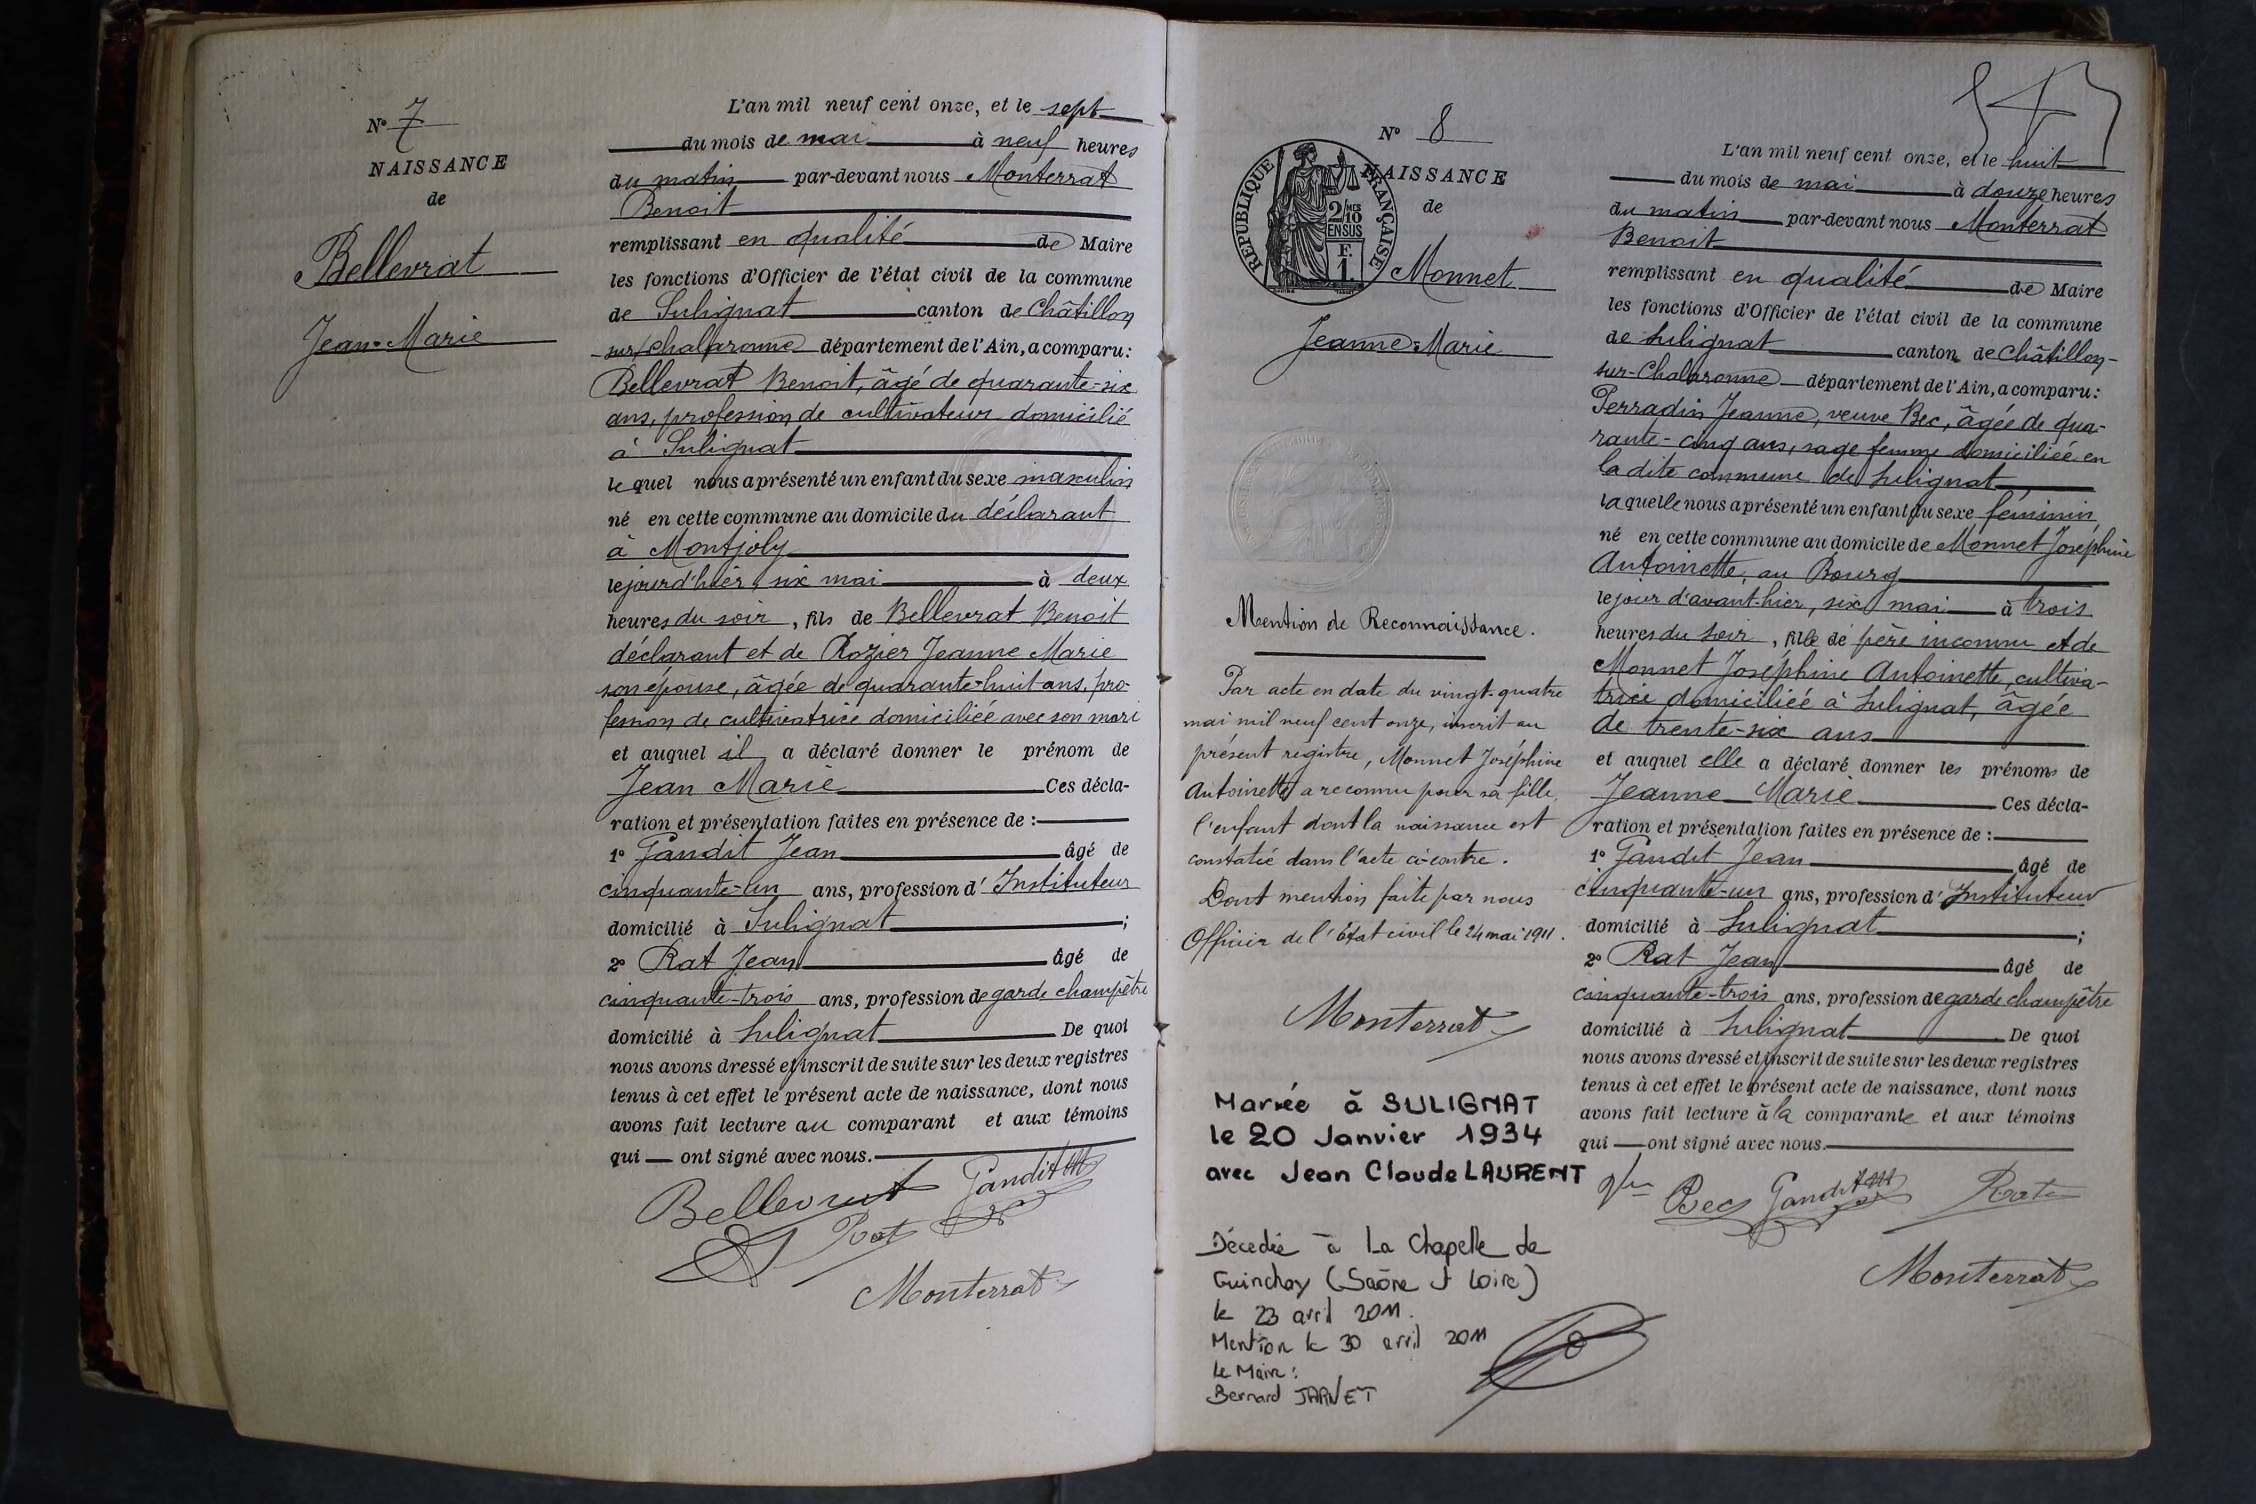 N° 7
NAISSANCE
de
Bellevrat
Jean-Marie
L'an mil neuf cent onze, et le sept
du mois de mai à neuf heures
du matin par-devant nous Monterrat
Benoit
remplissant en qualité de Maire
les fonctions d'Officier de l'état civil de la commune
de Sulignat canton de Châtillon
sur Chalaronne département de l'Ain, a comparu:
Bellevrat Benoit, âgé de quarante-six
ans, profession de cultivateur domicilié
à Sulignat
lequel nous a présenté un enfant du sexe masculin
né en cette commune au domicile du déclarant
à Montjoly
le jour d'hier, six mai à deux
heures du soir, fils de Bellevrat Benoit
déclarant et de Rozier Jeanne Marie
son épouse, âgée de quarante-huit ans, pro-
fession de cultivatrice domiciliée avec son mari
et auquel il a déclaré donner le prénom de
Jean Marie Ces décla-
ration et présentation faites en présence de :
1° Gandit Jean âgé de
cinquante-un ans, profession d'Instituteur
domicilié à Sulignat ;
2° Rat Jean âgé de
cinquante-trois ans, profession de garde champêtre
domicilié à Sulignat De quoi
nous avons dressé et inscrit de suite sur les deux registres
tenus à cet effet le présent acte de naissance, dont nous
avons fait lecture au comparant et aux témoins
qui — ont signé avec nous.
Bellevrat Gandit
Rat
Monterrat
N° 8
NAISSANCE
de
RÉPUBLIQUE FRANÇAISE
2/MES
10
EN SUS
F.
1.
Monnet
Jeanne-Marie
Mention de Reconnaissance.
Par acte en date du vingt-quatre
mai mil neuf cent onze, inscrit au
présent registre, Monnet Joséphine
Antoinette a reconnu pour sa fille,
l'enfant dont la naissance est
constatée dans l'acte ci-contre.
Dont mention faite par nous
Officier de l'État civil le 24 mai 1911.
Monterrat
Mariée à SULIGNAT
le 20 Janvier 1934
avec Jean Claude LAURENT
Décedée à La Chapelle de
Guinchay (Saône et Loire)
le 23 avril 2011.
Mention le 30 avril 2011
Le Maire :
Bernard JARNET
L'an mil neuf cent onze, et le huit
du mois de mai à douze heures
du matin par-devant nous Monterrat
Benoit
remplissant en qualité de Maire
les fonctions d'Officier de l'état civil de la commune
de Sulignat canton de Châtillon-
sur-Chalaronne département de l'Ain, a comparu:
Perradin Jeanne, veuve Bec, âgée de qua-
rante-cinq ans, sage femme domiciliée en
la dite commune de Sulignat
laquelle nous a présenté un enfant du sexe féminin,
né en cette commune au domicile de Monnet Joséphine
Antoinette, au Bourg
le jour d'avant-hier, six mai à trois
heures du soir, fille de père inconnu et de
Monnet Joséphine Antoinette, cultiva-
trice domiciliée à Sulignat, âgée
de trente-six ans
et auquel elle a déclaré donner les prénoms de
Jeanne Marie Ces décla-
ration et présentation faites en présence de :
1° Gandit Jean âgé de
cinquante-un ans, profession d'Instituteur
domicilié à Sulignat ;
2° Rat Jean âgé de
cinquante-trois ans, profession de garde champêtre
domicilié à Sulignat De quoi
nous avons dressé et inscrit de suite sur les deux registres
tenus à cet effet le présent acte de naissance, dont nous
avons fait lecture à la comparante et aux témoins
qui — ont signé avec nous.
Bec Gandit Rat
Monterrat